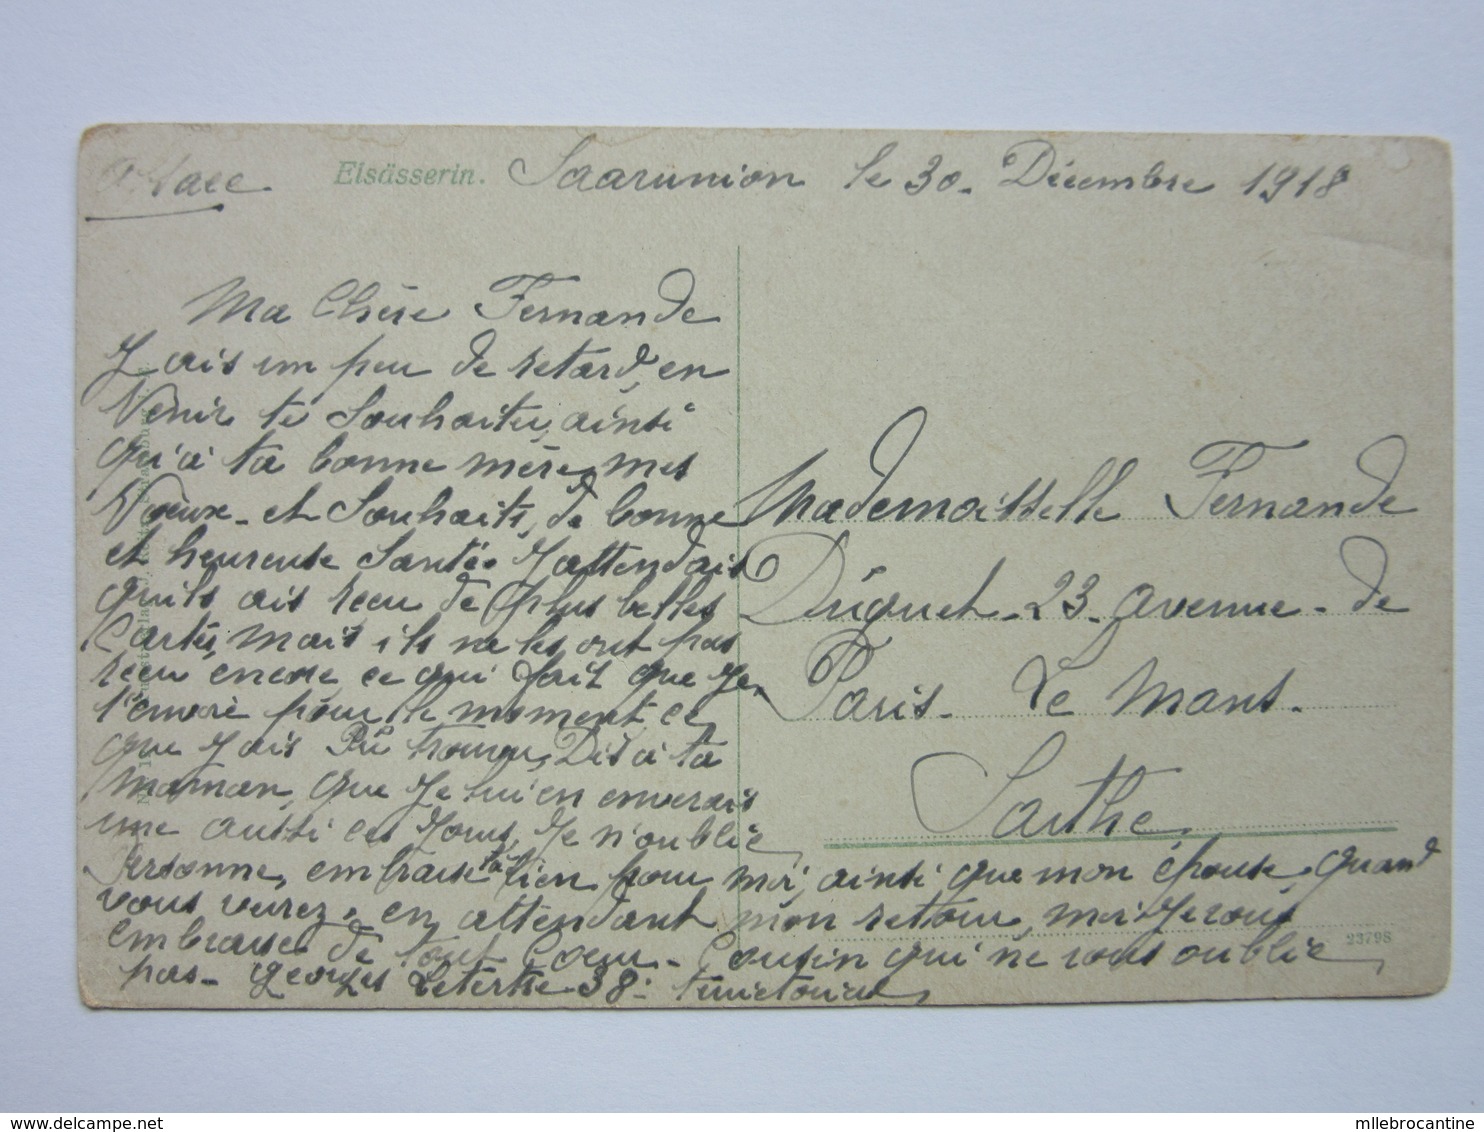 Alsace Elsässerin. Saarunion le 30. Décembre 1918
Ma Chère Fernande
J'ais un peu de retard, en
Venir te Souhaiter, ainsi
qu'à ta bonne mère, mes
Voeux et Souhaits, de bonne
et heureuse Santé. J'attendais
quils, ais reçu de plus belles
Cartes, mais ils ne les ont pas
reçu encore, ce qui fait que je
t'envoie pour le moment ce
que J'ais Pu trouver, Dis à ta
maman, que Je lui en enverais
une aussi ces Jours, Je n'oublie
Personne, embrasse la bien pour moi, ainsi que mon épouse, quand
vous verez, en attendant mon retour, moi Je vous
embrasse de tout Coeur. Cousin qui ne vous oublie
pas. Georges Letertre 38e territorial
Mademoisselle Fernande
Duguet. 23. avenue. de
Paris. Le Mans.
Sarthe
23798
delcampe.net
mllebrocantine